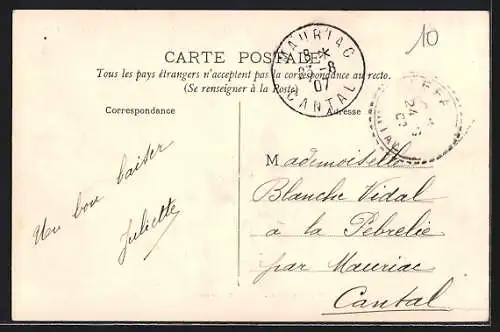 10
CARTE POSTALE
Tous les pays étrangers n'acceptent pas la correspondance au recto.
(Se renseigner à la Poste)
MAURIAC
8 *
-8
07
CANTAL
24
Correspondance
Adresse
Un bon baiser
Juliette
Mademoiselle
Blanche Vidal
à la Pebrelie
par Mauriac
Cantal